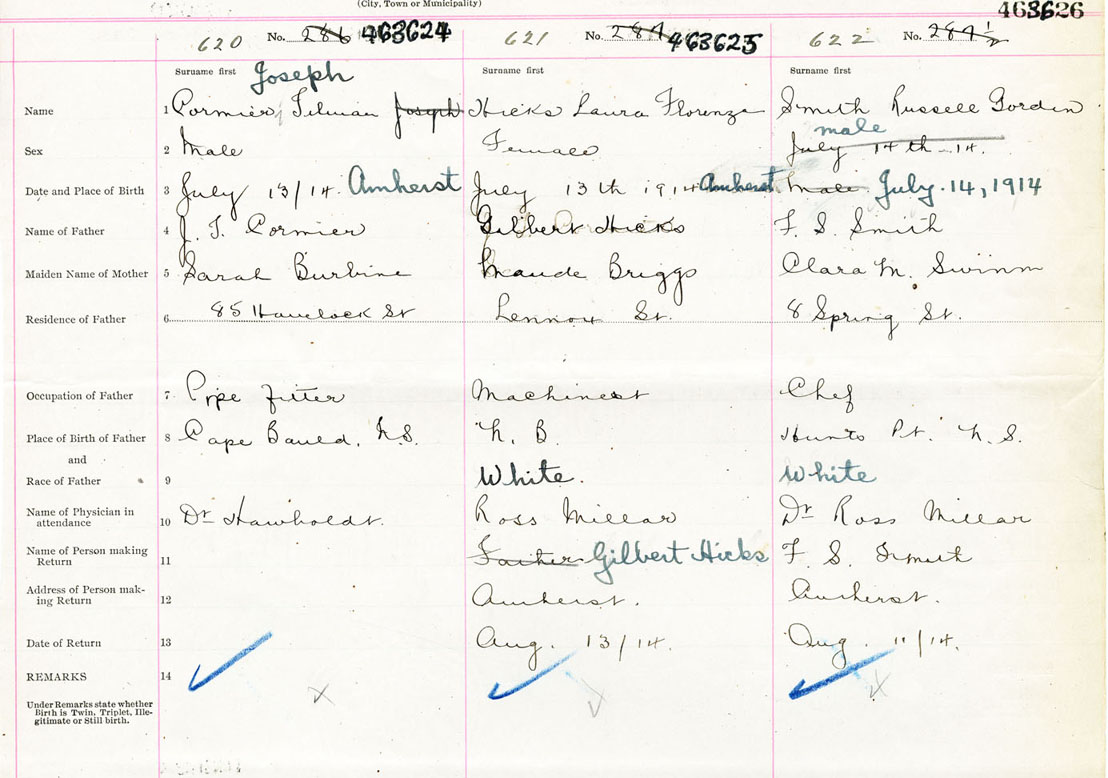 (City, Town or Municipality)
463626
620 No. 286 463624 621 No. 284 463625 622 No. 284 1/2
Surname first Joseph Surname first Surname first
Name 1 Cormier, Tilman Joseph Hicks Laura Florenze Smith Russell Gorden
male
Sex 2 Male Female July 14th-14.
Date and Place of Birth 3 July 13/14 Amherst July 13th 1914 Amherst Male July. 14, 1914
Name of Father 4 J. T. Cormier Gilbert Hicks F. S. Smith
Maiden Name of Mother 5 Sarah Burbine Maude Briggs Clara M.
Residence of Father 6 85 Havelock St Lennox St. 8 Spring St.
Occupation of Father 7 Pipe fitter Machinest Chef
Place of Birth of Father 8 Cape Bauld, N.S. N. B. Hunts Pt. N. S.
and
Race of Father 9 White. White
Name of Physician in
attendance 10 Dr Ross Millar Dr Ross Millar
Name of Person making
Return 11 Father Gilbert Hicks F. S. Smith
Address of Person mak-
ing Return 12 Amherst. Amherst.
Date of Return 13 Aug. 13/14. Aug. 11/14.
REMARKS 14
Under Remarks state whether
Birth is Twin, Triplet, Ille-
gitimate or Still birth.